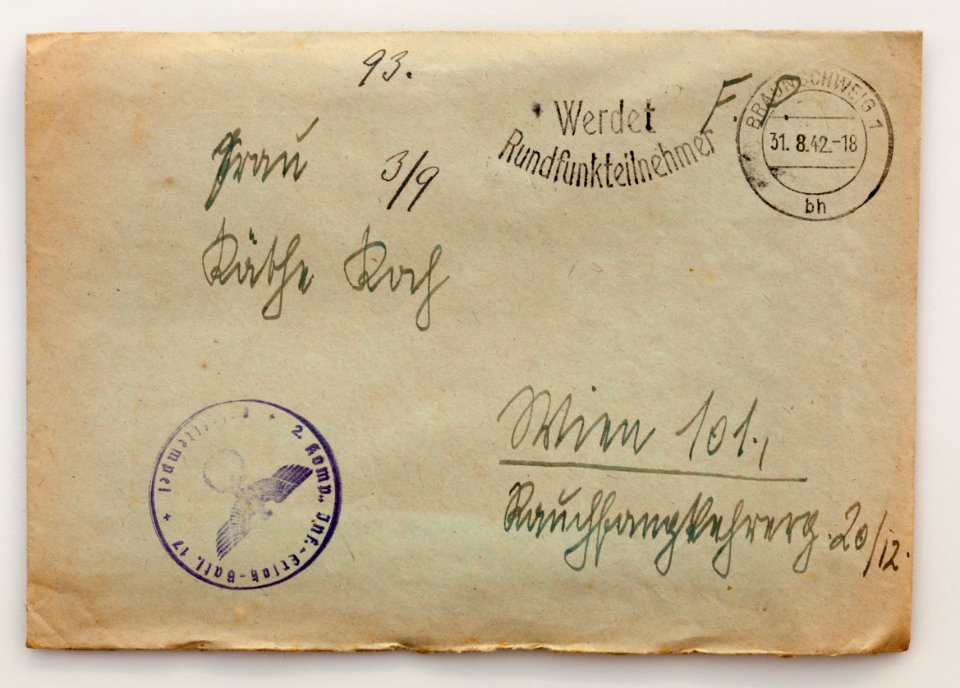 93.
F.
Werdet
Rundfunkteilnehmer
BRAUNSCHWEIG 1
31. 8.42.-18
bh
Frau
3/9
Käthe Koch
Wien 101.,
Rauchfangkehrerg. 20/12.
2. Komp. Inf.-Ersatz-Batl. 17